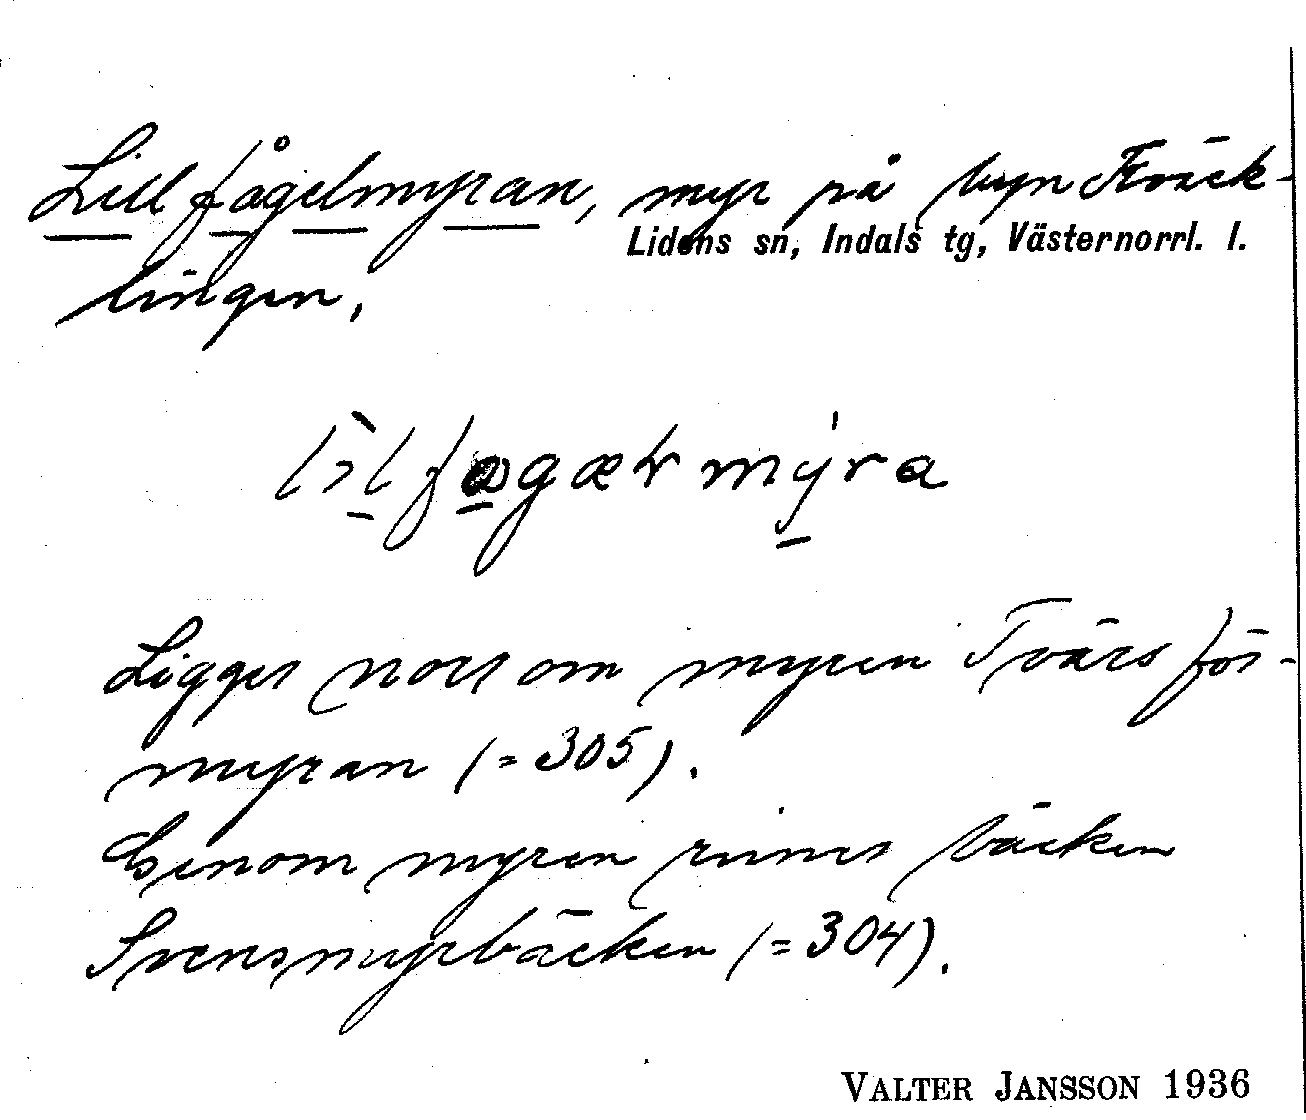 Lillfågelmyran, myr på byn Kväck-
Lidens sn, Indals tg, Västernorrl. l.
lingen.
Ligger norr om myren Tvärsför-
myran (= 305).
Genom myren rinner bäcken
Svensmyrbäcken (= 304).
VALTER JANSSON 1936